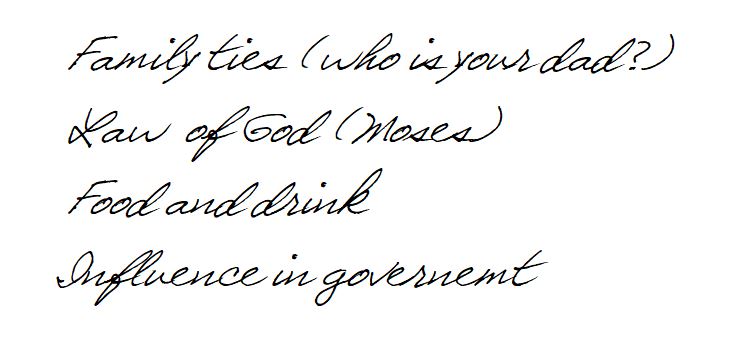 Family ties (who is your dad?)
Law of God (Moses)
Food and drink
Influence in governemt